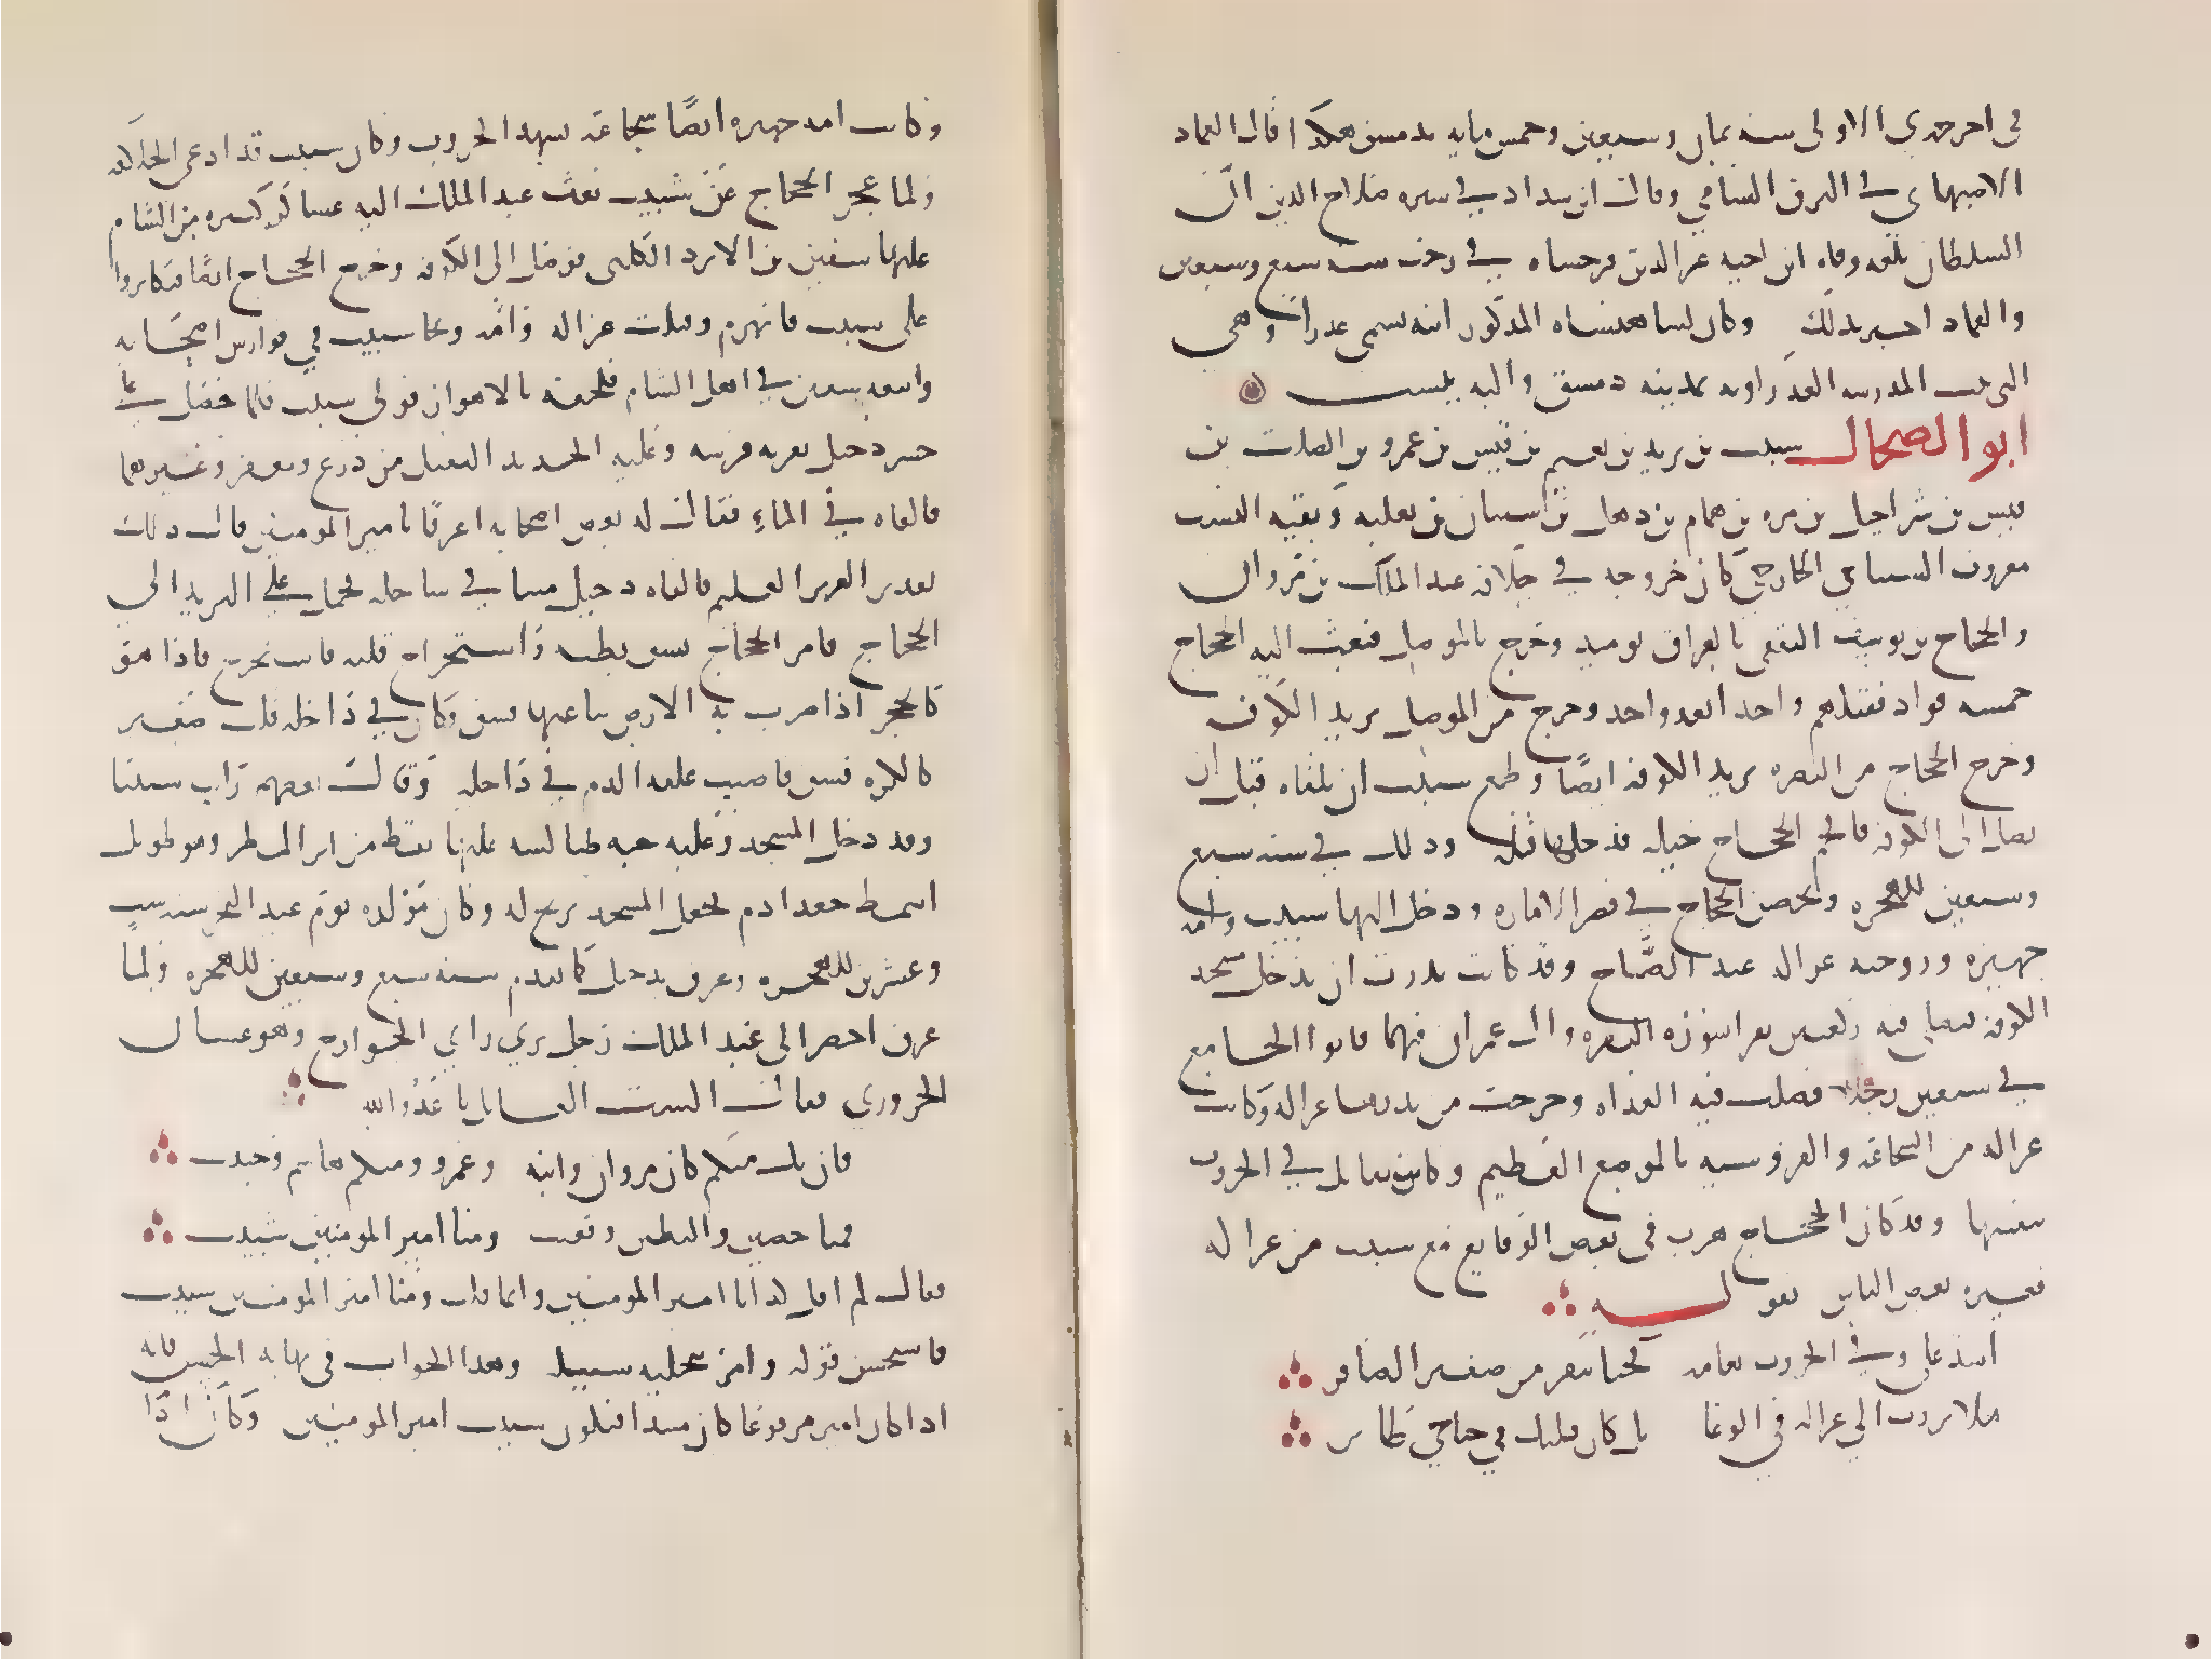 في اخر جمدى الاولى سنه ثمان وسبعين وخمس مايه بدمشق هكذا قال العماد
الاصبهاني في البرق الشامي وقال ابن شداد في سيره صلاح الدين ان
السلطان بلغه وفاه ابن اخيه عز الدين فرخشاه في رجب سنه سبع وسبعين
والعماد اخبر بذلك وكان لشاهنشاه المذكور ابنه تسمى عذرا وهي
التي بنت المدرسه العذراويه بمدينه دمشق واليه ينسب
ابو الضحاك شبيب بن يزيد بن نعيم بن قيس بن عمرو بن الصلت بن
قيس بن شراحيل بن مره بن همام بن ذهل بن شيبان بن ثعلبه وبقيه النسب
معروف الشيباني الخارجي كان خروجه في خلافه عبد الملك بن مروان
والحجاج بن يوسف الثقفي بالعراق يوميد وخرج بالموصل فبعث اليه الحجاج
خمسه قواد فقتلهم واحدا بعد واحد وخرج من الموصل يريد الكوفه
وخرج الحجاج من البصره يريد الكوفه ايضًا وطمع شبيب ان يلقاه قبل ان
يصل الى الكوفه فاقحم الحجاج خيله فدخلها قبله وذلك في سنه سبع
وسبعين للهجره وتحصن الحجاج في قصر الاماره ودخل اليها شبيب وامه
جهيزه وزوجته غزاله عند الصَّباح وقد كانت نذرت ان تدخل مسجد
الكوفه فتصلي فيه ركعتين تقرا سوره البقره وال عمران فيهما فاتوا الجامع
في سبعين رجلا فصلت فيه الغداه وخرجت من نذرها غزاله وكانت
غزاله من الشجاعه والفروسيه بالموضع العظيم وكانت تقاتل في الحروب
بنفسها وقد كان الحجاج هرب في بعض الوقايع مع شبيب من غزاله
فعيره بعض الناس بقوله
اسد علي وفي الحروب نعامه فتخا تنفر من صفير الصافر
هلا برزت الى غزاله في الوغا بل كان قلبك في جناحي طاير
وكانت امه جهيزه ايضًا شجاعه تشهد الحروب وكان شبيب قد ادعى الخلافه
ولما عجز الحجاج عن شبيب بعث عبد الملك اليه عساكر كثيره من الشام
عليها سفين بن الابرد الكلبي فوصل الى الكوفه وخرج الحجاج ايضًا فتكاثروا
على شبيب فانهزم وقتلت غزاله وامه ونجا شبيب في فوارس اصحابه
واتبعه سفين في اهل الشام فلحقه بالاهواز فولى شبيب فلما حصل على
جسر دجيل نفر به فرسه وعليه الحديد الثقيل من درع ومغفر وغيرهما
فالقاه في الماءِ فقال له بعض اصحابه اغرقًا يا امير المومنين قال ذلك
تقدير العزيز العليم فالقاه دجيل ميتا في ساحله فحمل على البريد الى
الحجاج فامر الحجاج بشق بطنه واستخراج قلبه فاستخرج فاذا هو
كالحجر اذا ضرب به الارض نبا عنها فشق وكان في داخله قلب صغير
كالكره فشق فاصيب علقه الدم في داخله وقال بعضهم رايت شبيبا
وقد دخل المسجد وعليه جبه طيالسه عليها نقط من اثر المطر وهو طويل
اشمط جعد ادم فجعل المسجد يرتج له وكان مولده يوم عيد النحر سنه ست
وعشرين للهجره وغرق بدجيل كما تقدم سنه سبع وسبعين للهجره ولما
غرق احضر الى عبد الملك رجل يري راي الخوارج وهو عتبان
الحروري فقال الست القايل يا عَدُوالله
فان يك منكم كان مروان وابنه وعمرو ومنكم هاشم وحبيب
فمنا حصين والبطين وقعنب ومنا امير المومنين شبيب
فقال لم اقل كذا يا امير المومنين وانما قلت ومنا امير المومنين شبيب
فاستحسن قوله وامر بتخليه سبيله وهذا الجواب في نهايه الحسن فانه
اذا كان امير مرفوعا كان مبتدا فيكون شبيب امير المومنين وكان اذا